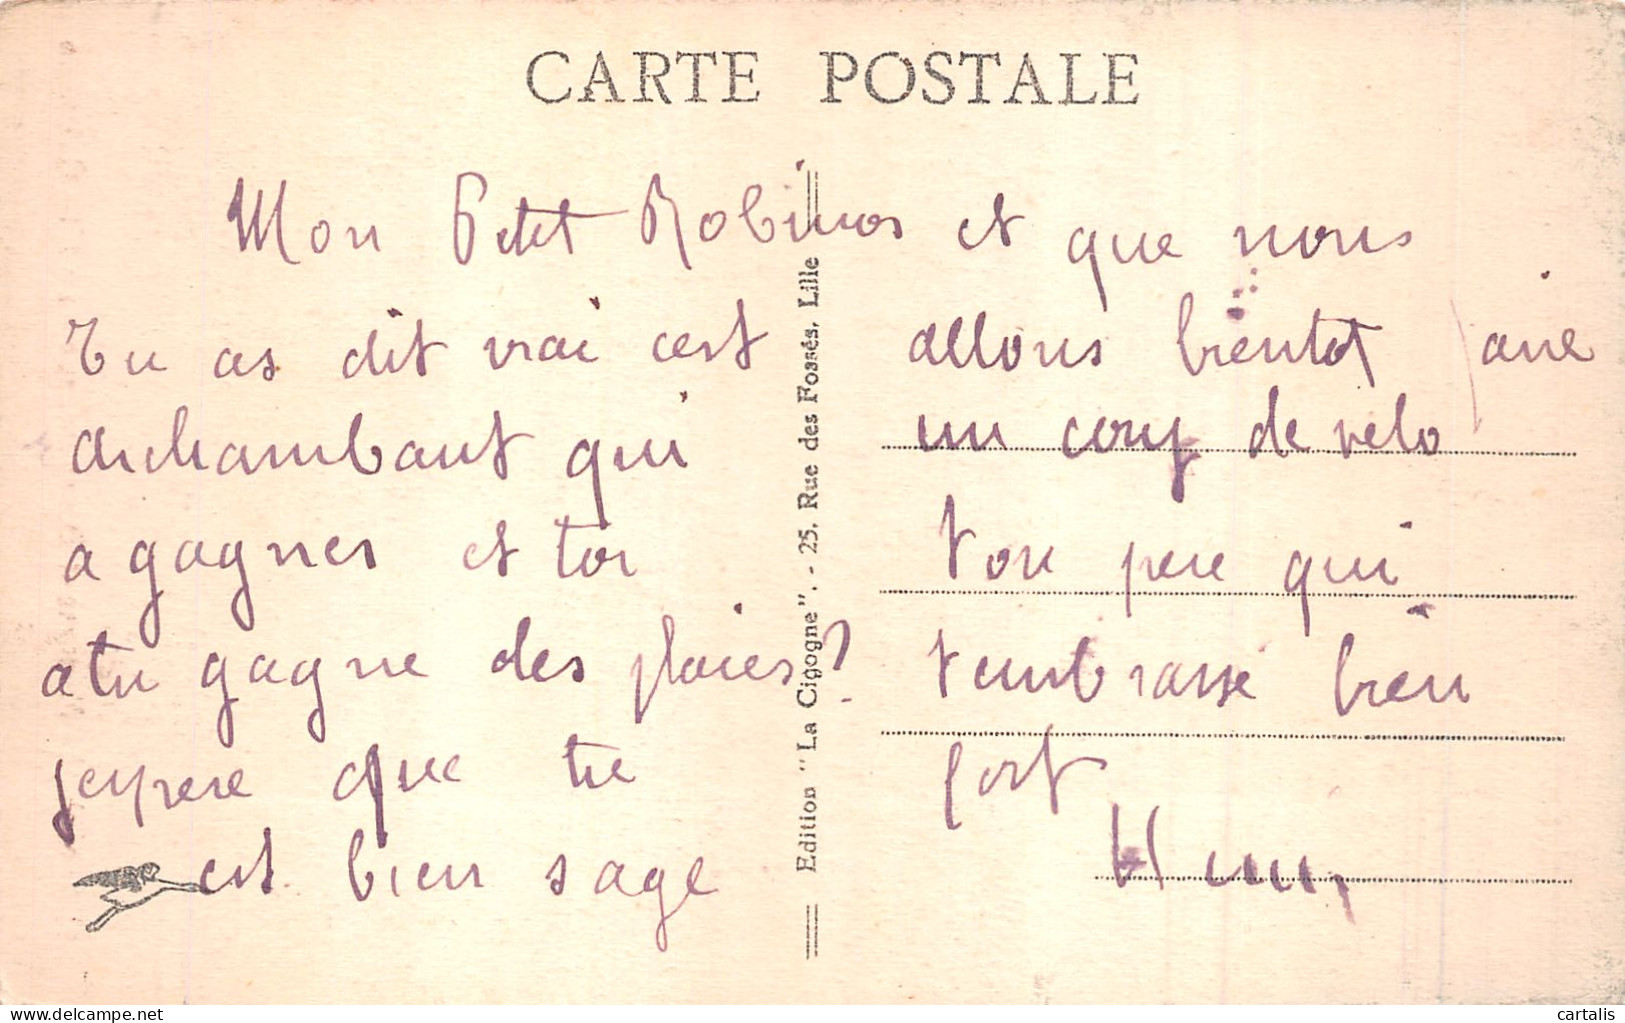 CARTE POSTALE
Mon Petit Robinos
Tu as dit vrai cest
archambaut qui
a gagner et toi
atu gagne des plaies?
jespere que tu
est bien sage
Edition "La Cigogne". - 25, Rue des Fossés, Lille
et que nous
allons bientot faire
un coup de velo
ton pere qui
tembrasse bien
fort
delcampe.net
cartalis